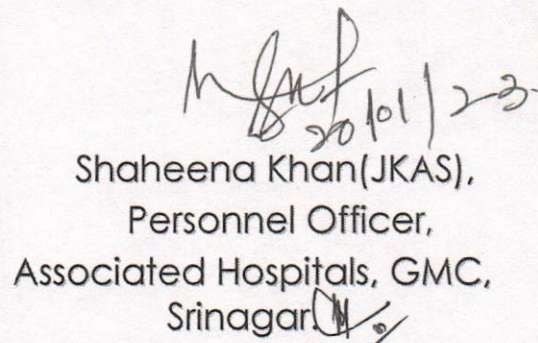 20/01/23
Shaheena Khan(JKAS),
Personnel Officer,
Associated Hospitals, GMC,
Srinagar.